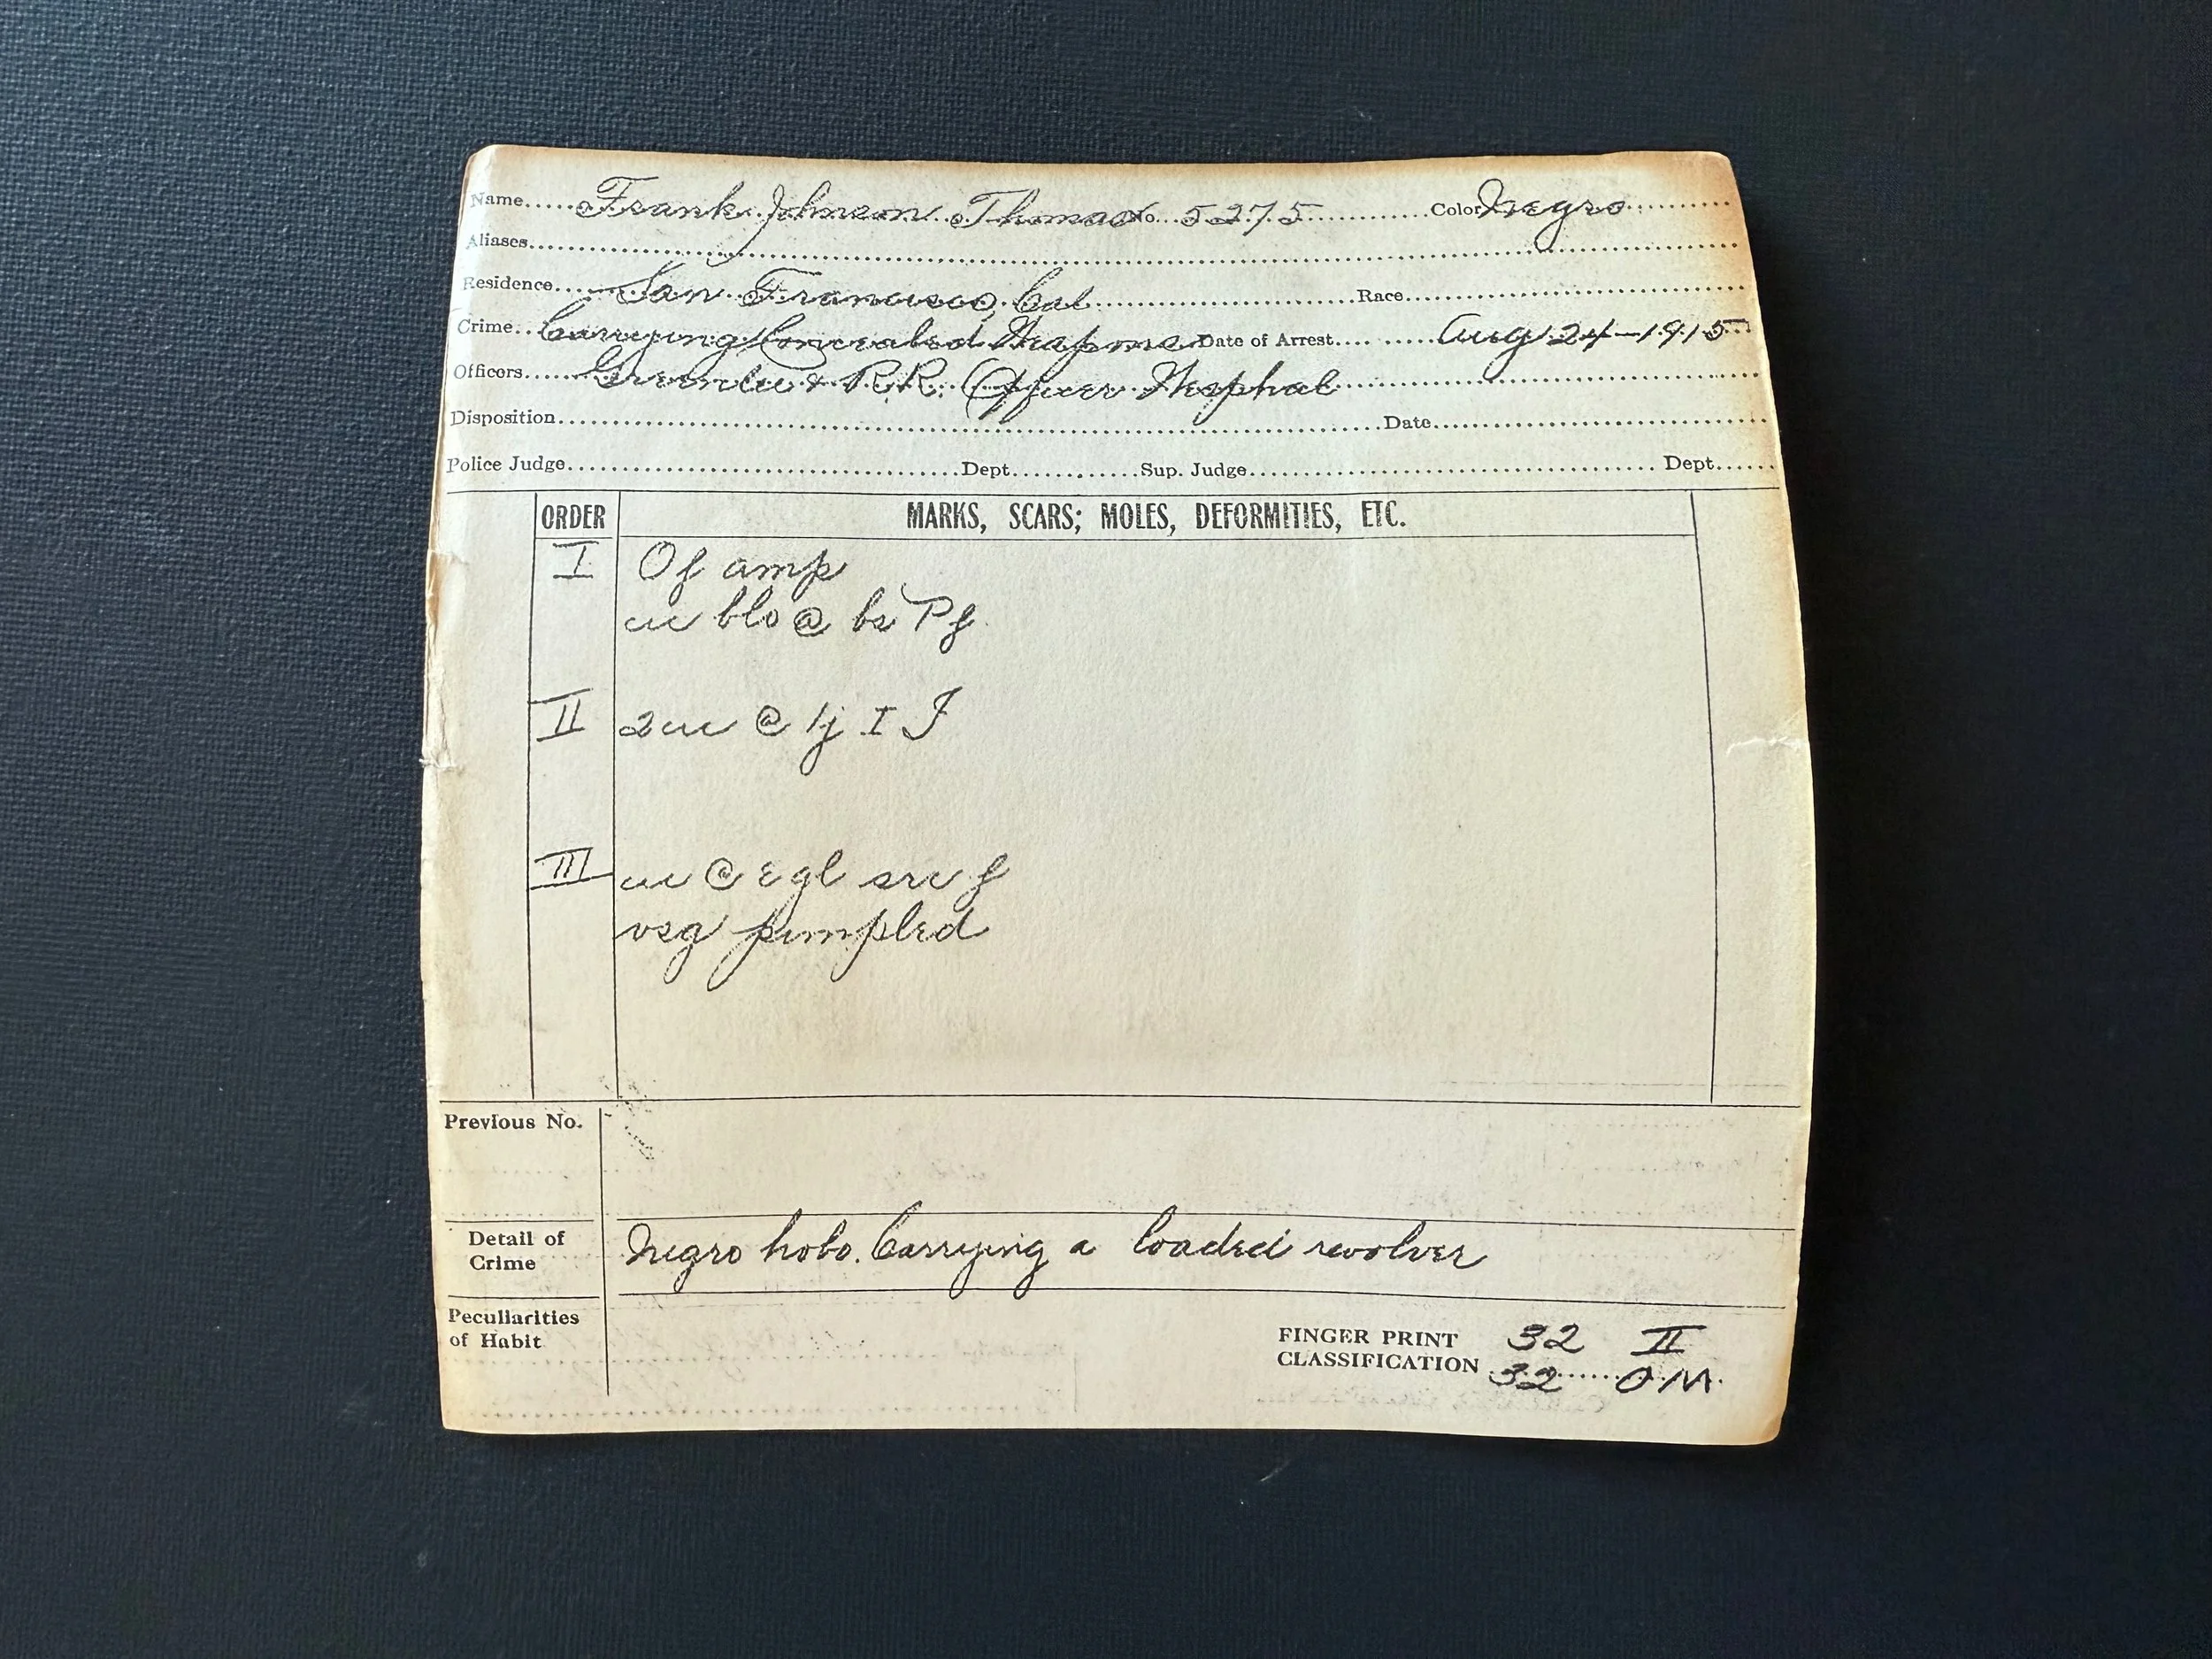 Name.....Frank Johnson Thomas No. 5275 Color Negro
Aliases
Residence San Francisco, Cal Race
Crime Carrying Concealed Weapons Date of Arrest Aug 24-1915
Officers & R.R. Officer Wesphal
Disposition Date
Police Judge Dept Sup. Judge Dept
ORDER MARKS, SCARS; MOLES, DEFORMITIES, ETC.
I Of amp
cic blo @ bs Pf
II 2 cic @ 1j I J
III cic @ egl src f
vsg pimpled
Previous No.
Detail of Crime Negro hobo. Carrying a loaded revolver
Peculiarities
of Habit
FINGER PRINT 32 II
CLASSIFICATION 32 OM